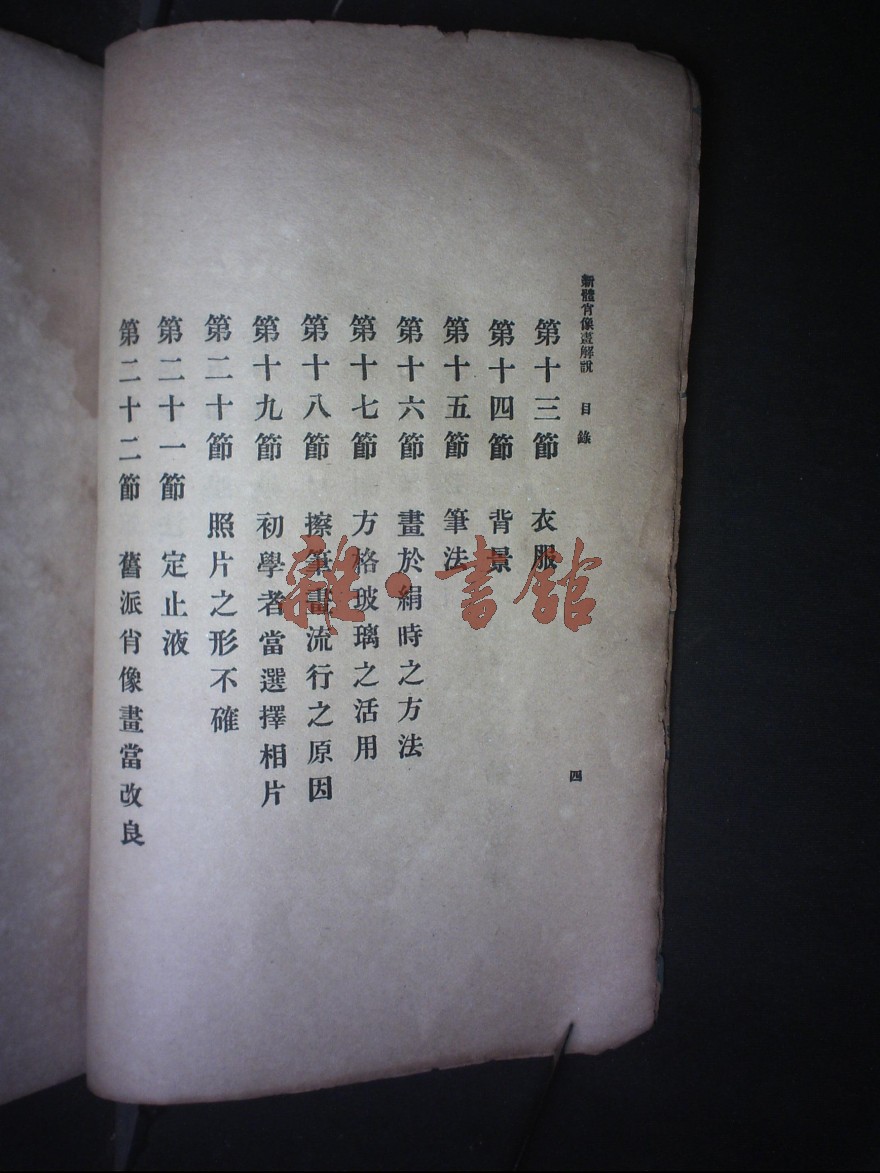 新體肖像畫解說 目錄
四
第十三節 衣服
第十四節 背景
第十五節 筆法
第十六節 畫於絹時之方法
第十七節 方格玻璃之活用
第十八節 擦筆畫流行之原因
第十九節 初學者當選擇相片
第二十節 照片之形不確
第二十一節 定止液
第二十二節 舊派肖像畫當改良
雜·書館